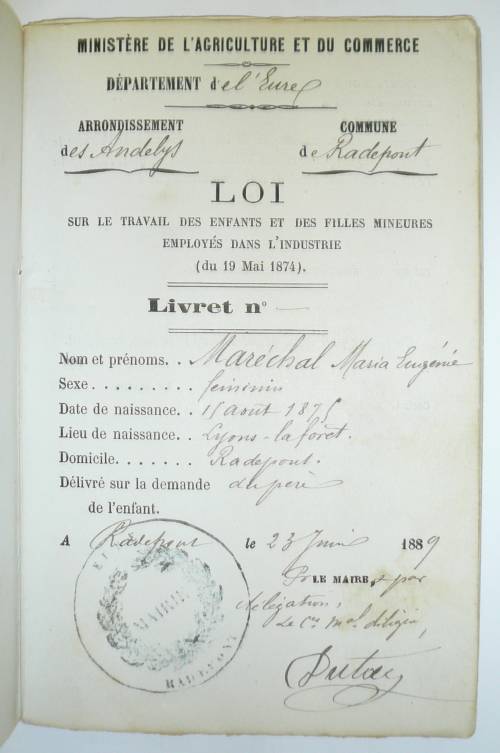 MINISTÈRE DE L'AGRICULTURE ET DU COMMERCE
DÉPARTEMENT de l'Eure
ARRONDISSEMENT
des Andelys
COMMUNE
de Radepont
LOI
SUR LE TRAVAIL DES ENFANTS ET DES FILLES MINEURES
EMPLOYÉS DANS L'INDUSTRIE
(du 19 Mai 1874).
Livret nº —
Nom et prénoms. . Maréchal Maria Eugénie
Sexe . . . . . . . . . féminin
Date de naissance. . 15 août 1875
Lieu de naissance. . Lyons-la forêt.
Domicile. . . . . . . Radepont.
Délivré sur la demande du père
de l'enfant.
A Radepont le 23 Juin 1889
Pr LE MAIRE, & par
délégation,
Le Cer mal
MAIRIE
RADEPONT